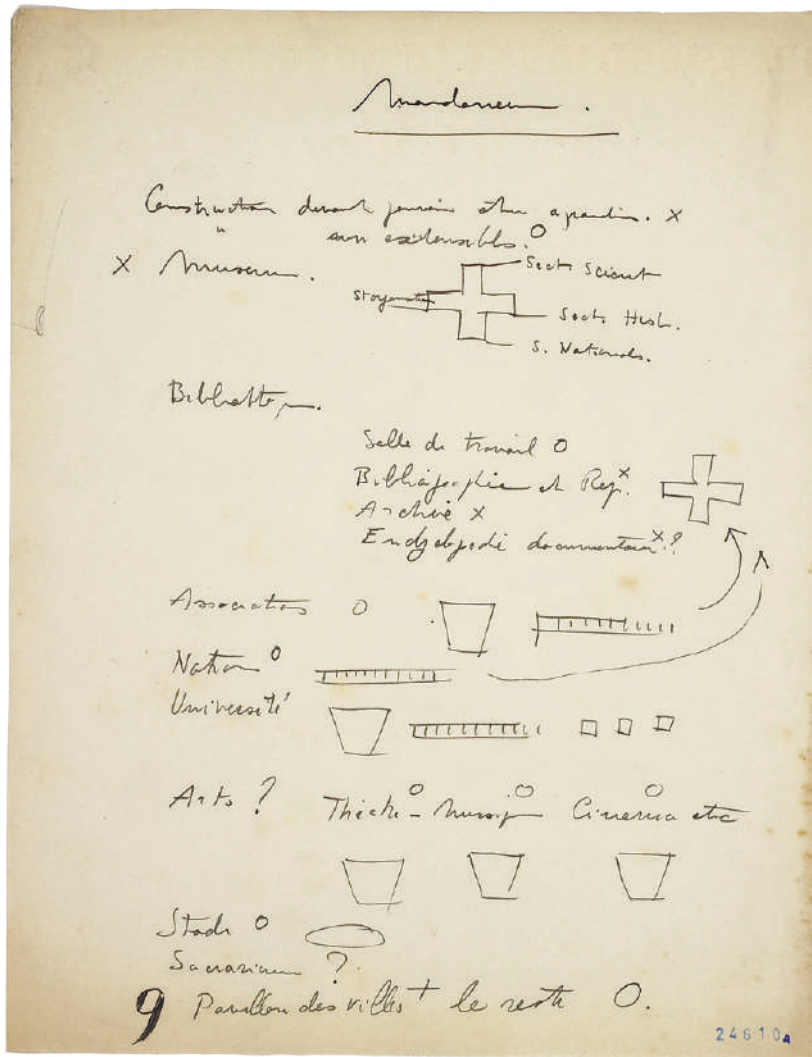 Mundaneum.
Construction devant pouvoir être agrandie. x
" non extensibles. O
X Museum.
Sect. Scient
Sect. Hist.
S. Nationals.
Bibliothèque.
Salle de travail O
Bibliographie et Rep. x
Archive x
Encyclopedie documentaire x ?
Associations O
Nation O
Université
Arts ? Théâtre O - Musique O Cinema O etc
Stade O
Sacrarium ?
9 Pavillon des villes + le reste O.
24610A